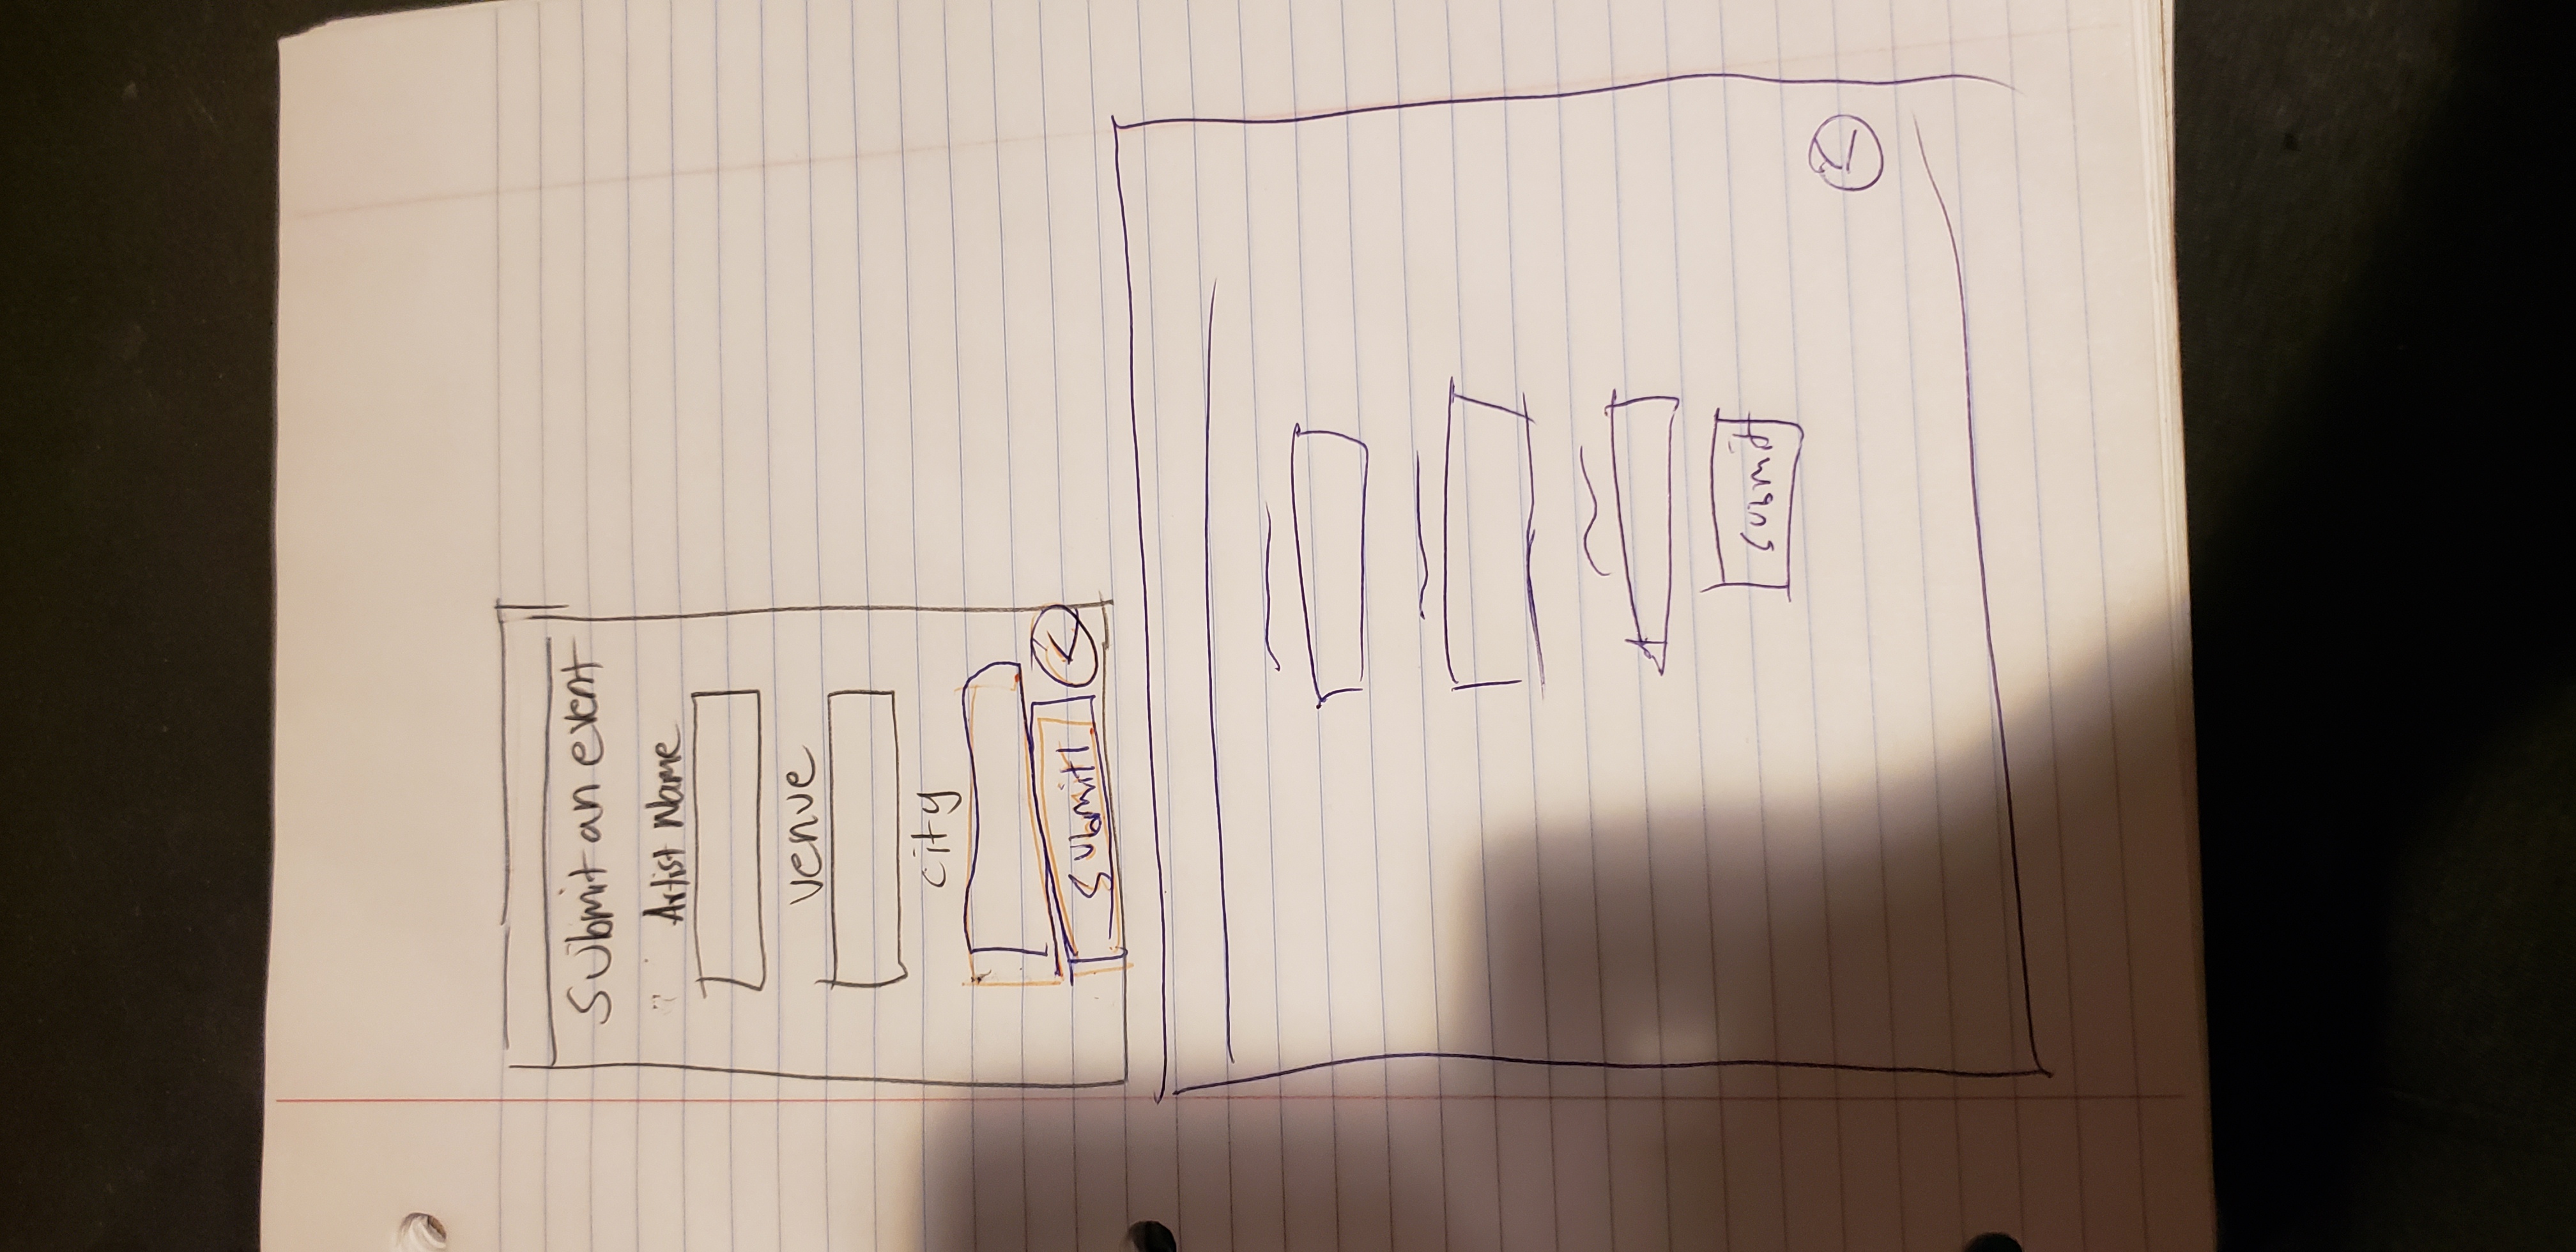 Submit an event
Artist Name
Venue
City
Submit
Submit